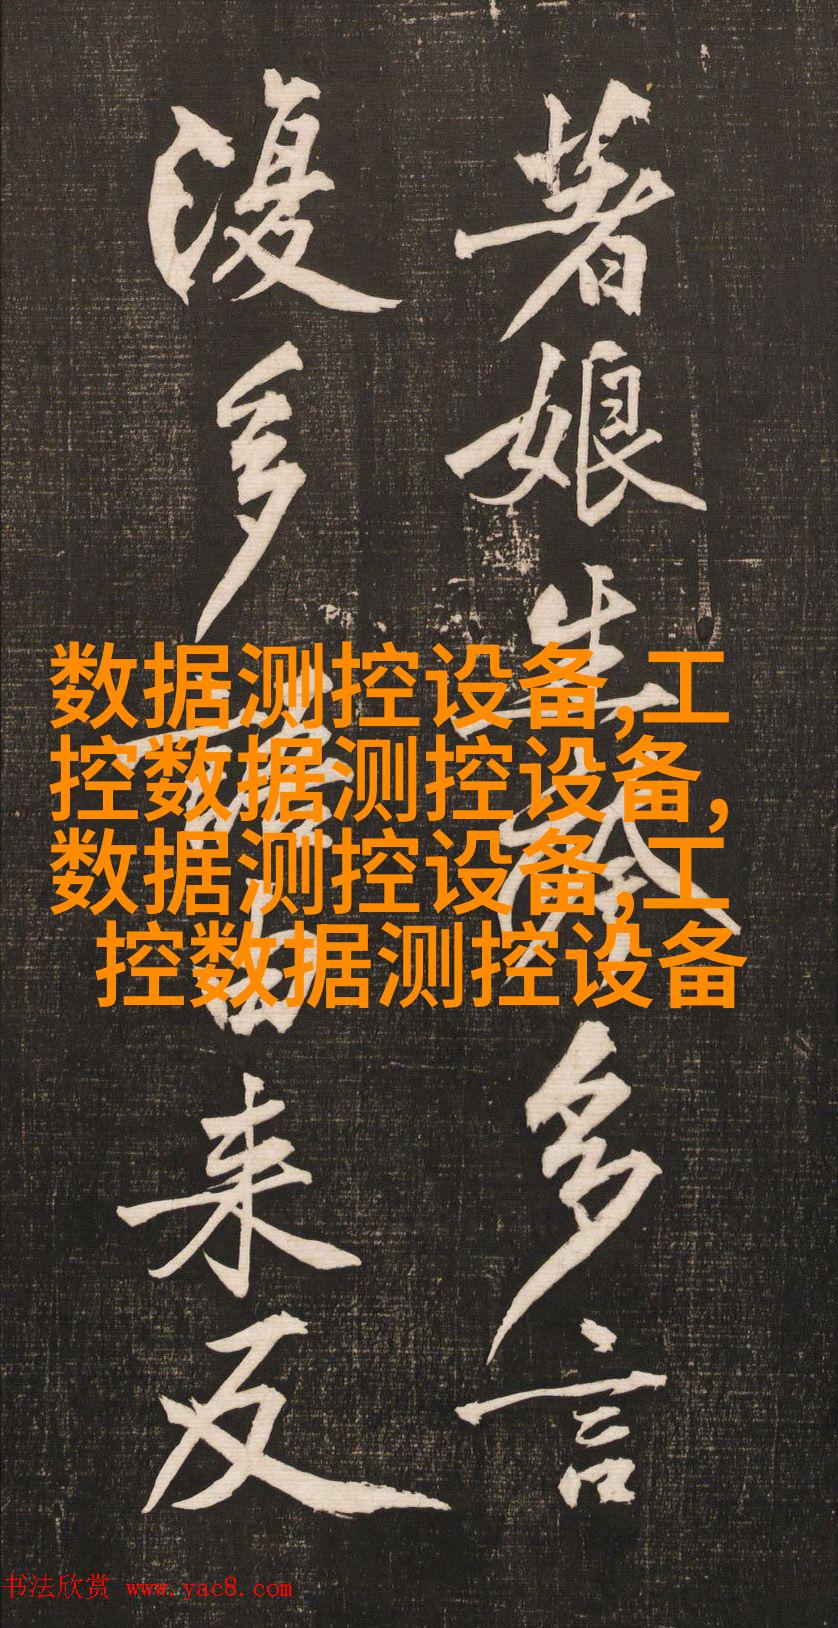 著娘生多言
復多語由来反
数据测控设备,工
控数据测控设备,
数据测控设备,工
控数据测控设备
书法欣赏 www.yac8.com